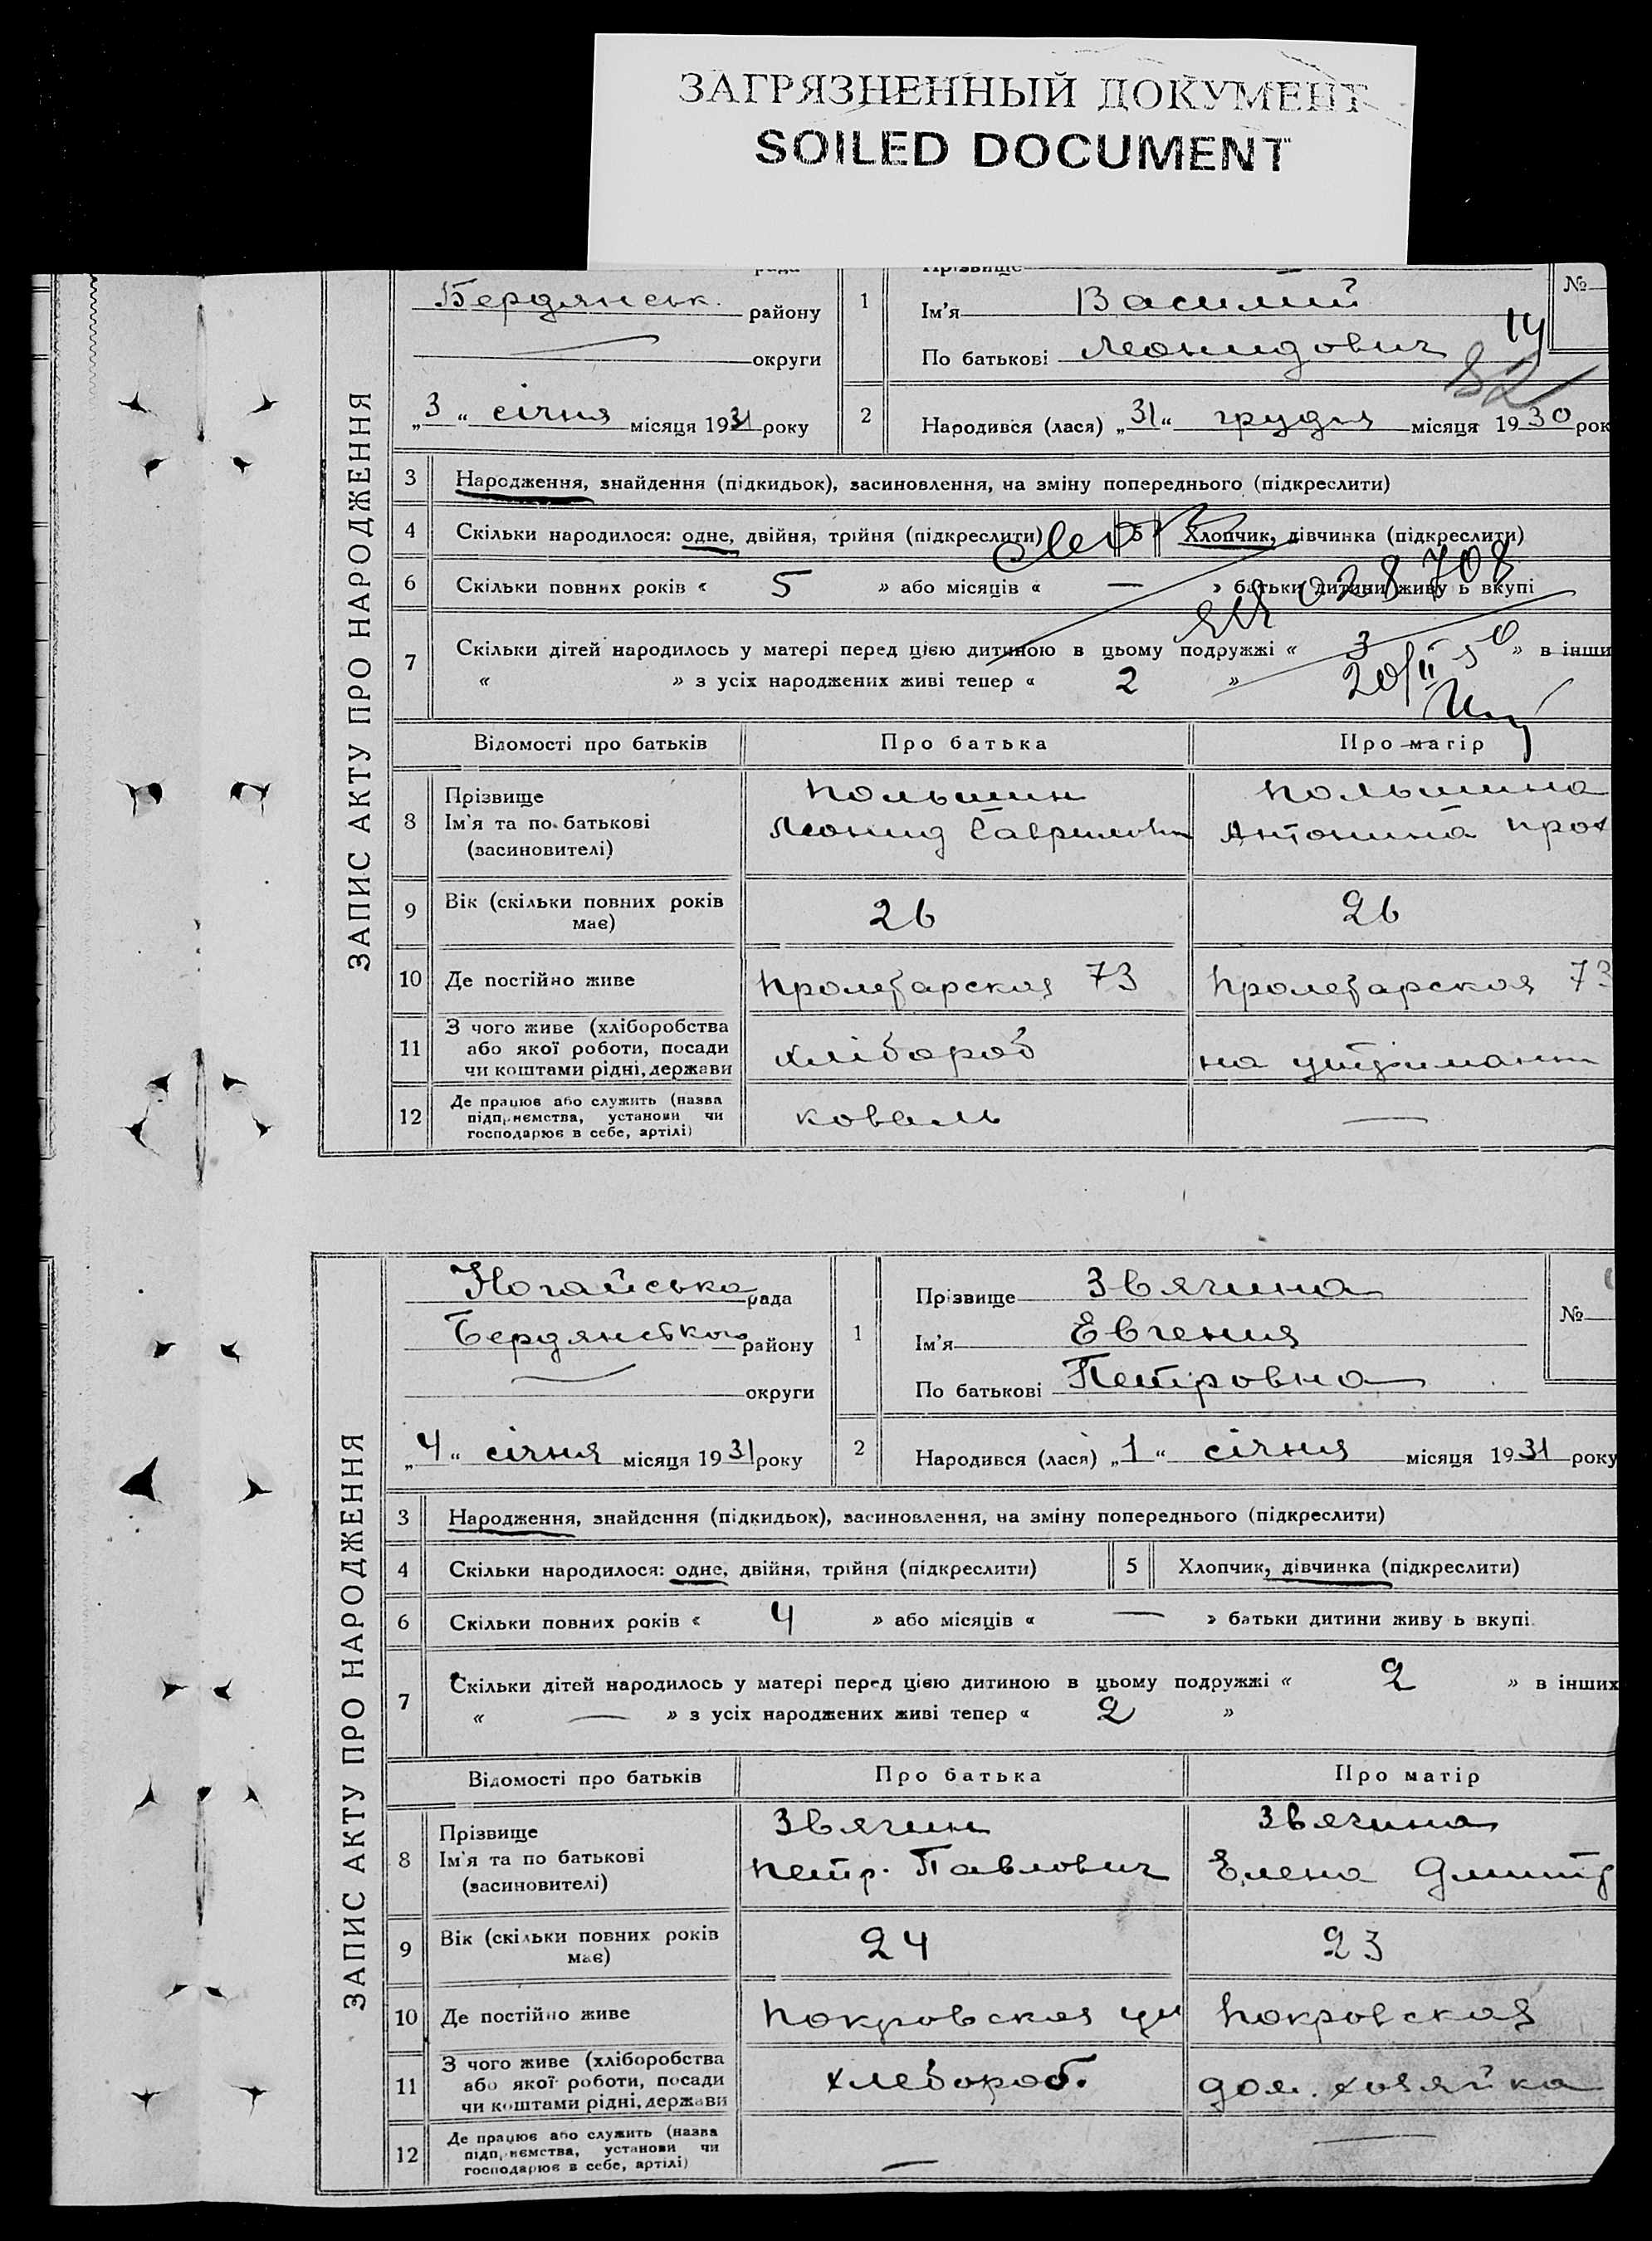 ЗАГРЯЗНЕННЫЙ ДОКУМЕНТ
SOILED DOCUMENT
ЗАПИС АКТУ ПРО НАРОДЖЕННЯ
Бердянськ. району
округи
„3“ січня місяця 1931 року
1
Ім'я Василий
По батькові Леонидович
№
14
82
2 Народився (лася) „31“ грудня місяця 1930 рок
3 Народження, знайдення (підкидьок), засиновлення, на зміну попереднього (підкреслити)
4 Скільки народилося: одне, двійня, трійня (підкреслити) 5 Хлопчик, дівчинка (підкреслити)
6 Скільки повних років « 5 » або місяців « — » батьки дитини живу ь вкупі
028708
7 Скільки дітей народилось у матері перед цією дитиною в цьому подружжі « 3 » в інши
« » з усіх народжених живі тепер « 2 »
20/II 50
Відомості про батьків Про батька Про матір
8 Прізвище Ім'я та по батькові (засиновителі)
Польшин Польшина
Леонид Гаврилович Антонина Прок
9 Вік (скільки повних років має) 26 26
10 Де постійно живе Пролетарская 73 Пролетарская 73
11 З чого живе (хліборобства або якої роботи, посади чи коштами рідні, держави хлібороб на утриманні
12 Де працює або служить (назва підприємства, установи чи господарює в себе, артілі) коваль —
ЗАПИС АКТУ ПРО НАРОДЖЕННЯ
Ногайська рада
Бердянського району
округи
„4“ січня місяця 1931 року
1 Прізвище Звягина
Ім'я Евгения
По батькові Петровна
№
2 Народився (лася) „1“ січня місяця 1931 року
3 Народження, знайдення (підкидьок), засиновлення, на зміну попереднього (підкреслити)
4 Скільки народилося: одне, двійня, трійня (підкреслити) 5 Хлопчик, дівчинка (підкреслити)
6 Скільки повних років « 4 » або місяців « — » батьки дитини живу ь вкупі
7 Скільки дітей народилось у матері перед цією дитиною в цьому подружжі « 2 » в інших
« — » з усіх народжених живі тепер « 2 »
Відомості про батьків Про батька Про матір
8 Прізвище Ім'я та по батькові (засиновителі)
Звягин Звягина
Петр. Павлович Елена Дмитр
9 Вік (скільки повних років має) 24 23
10 Де постійно живе Покровская ул Покровская
11 З чого живе (хліборобства або якої роботи, посади чи коштами рідні, держави хлебороб. дом. хозяйка
12 Де працює або служить (назва підприємства, установи чи господарює в себе, артілі) — —